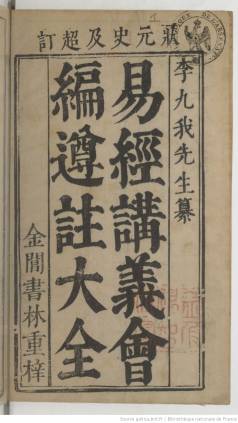 狀元史及超訂
李九我先生纂
易經講義會
編遵註大全
金閶書林重梓
Source gallica.bnf.fr / Bibliothèque nationale de France